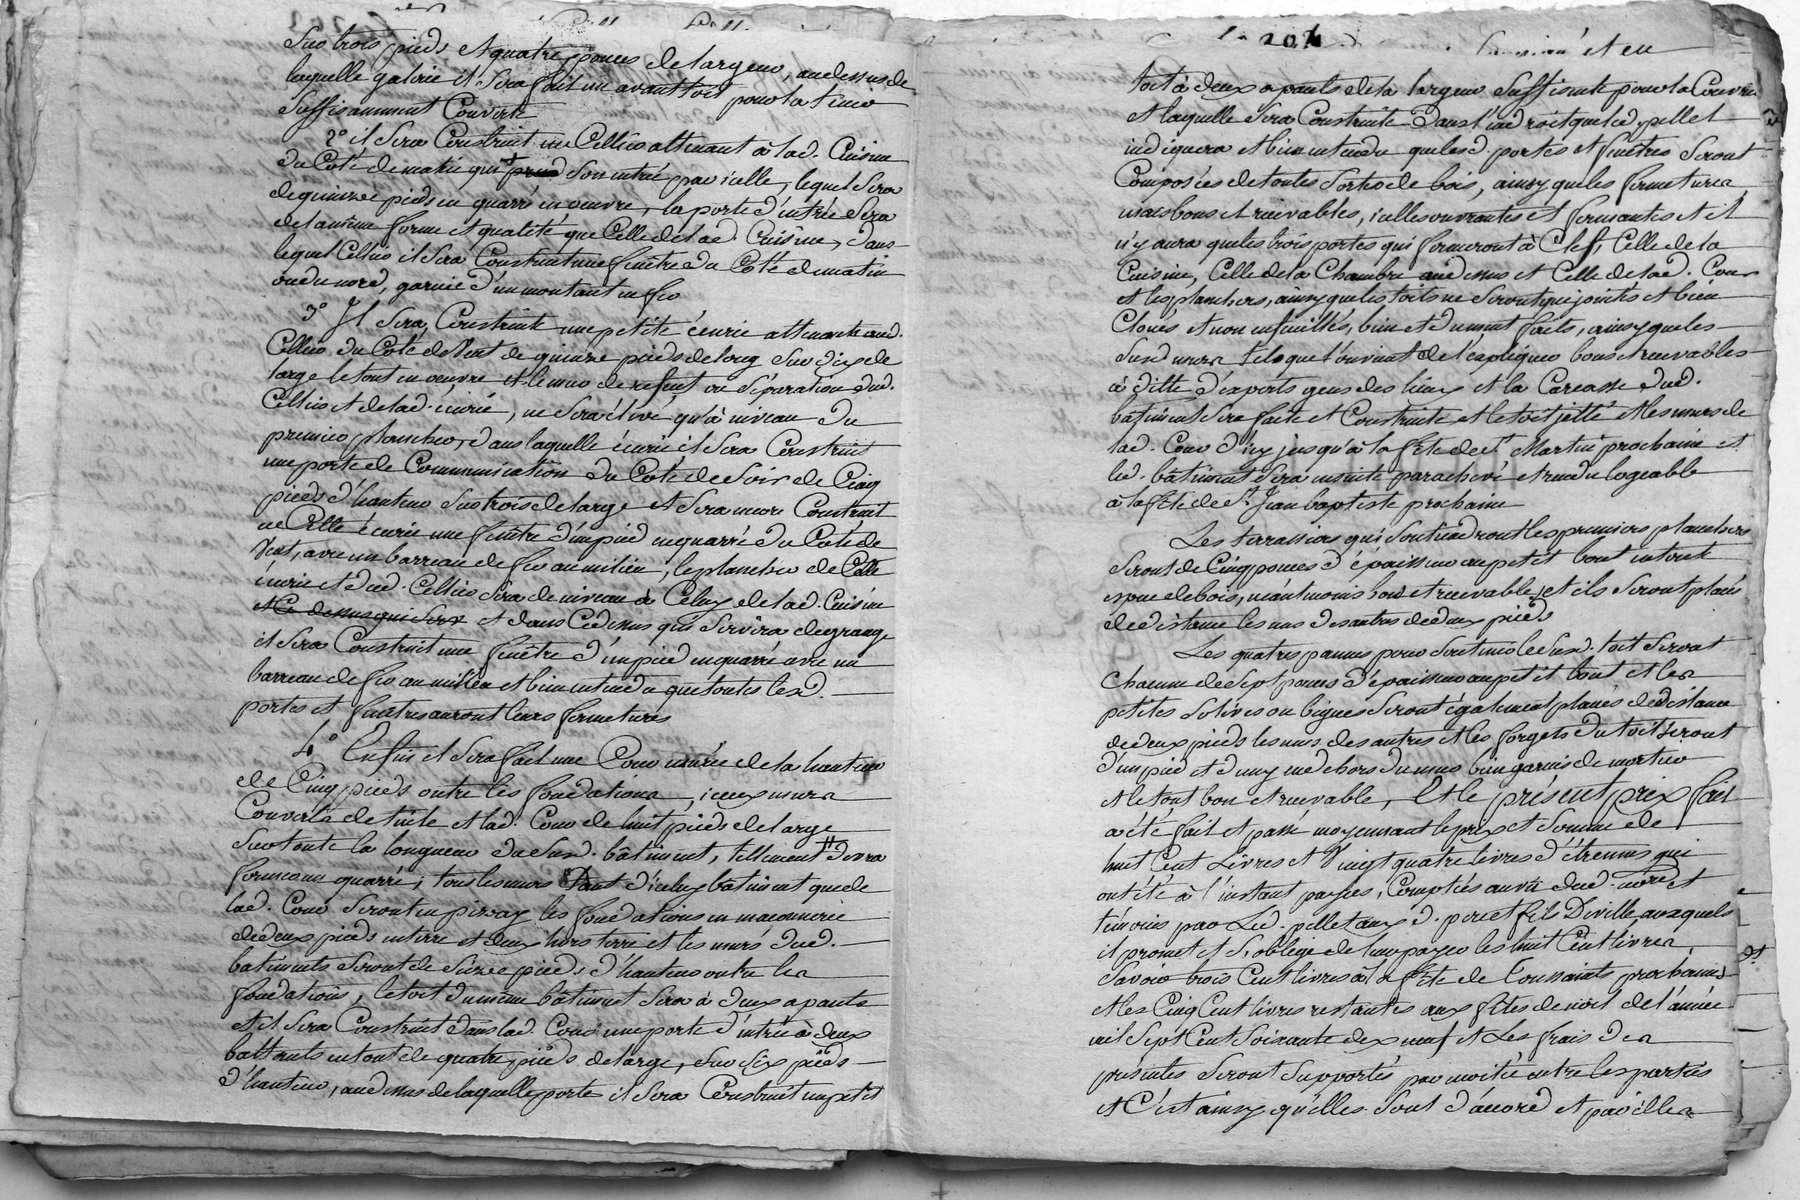 Sur trois pieds et quatre pouces de largeur, audessus de
laquelle galerie il sera fait un avant toit pour la tenir
Suffisamment Couverte
2° il sera Construit un Cellier attenant à lad. Cuisine
du Coté de matin qui prend son entrée par icelle, lequel sera
de quinze pieds en quarré en oeuvre, la porte d'entrée sera
de la même forme et qualité que Celle de lad. Cuisine, dans
lequel Cellier il sera Construit une fenêtre du Coté de matin
ou du nord, garnie d'un montant en fer
3° Il sera Construite une petite écurie attenante aud.
Cellier du Coté de Vent de quinze pieds de long sur dix de
large le tout en oeuvre et le mur de refent ou séparation dud.
Cellier et de lad. écurie, ne sera élevé qu'à niveau du
premier plancher, dans laquelle écurie il sera Construit
une porte de Communication du Coté de Soir de Cinq
pieds d'hauteur sur trois de large et sera encore Construit
ne Cette écurie une fenêtre d'un pied en quarré du Coté de
Vent, avec un barreau de fer au milieu, le plancher de Cette
écurie et dud. Cellier sera de niveau à Celuy de lad. Cuisine
et Ce dessus qui sera et dans Ce dessus qui servira de grange
il sera Construit une fenêtre d'un pied en quarré avec un
barreau de fer au milieu et bien entendu que toutes lesd.
portes et fenêtres auront leurs fermetures
4° Enfin il sera fait une Cour murée de la hauteur
de Cinq pieds outre les fondations, iceux murs
Couverts de tuile et lad. Cour de huit pieds de large
sur toute la longueur du susd. bâtiment, tellement devra
former un quarré; tous les murs tant d'icelux bâtiment que de
lad. Cour seront en pizay les fondations en maconnerie
de deux pieds en terre et deux hors terre et les murs dud.
batiments seront de seize pieds d'hauteur outre les
fondations, le toit du même bâtiment sera à deux apants
et il sera Construit dans lad. Cour une porte d'entrée à deux
battants en tout de quatre pieds de large, sur six pieds
d'hauteur, audessus de laquelle porte il sera Construit un petit
204
et en
toit à deux apants de la largeur suffisante pour la Couvrir
et laquelle sera Construite dans l'endroit que led. pellet
indiquera et bien entendu que lesd. portes et fenêtres seront
Composées de toutes sortes de bois, ainsy que les fermetures
mais bons et recevables, icelles ouvrantes et fermantes et il
n'y aura que les trois portes qui fermeront à Clef, Celle de la
Cuisine, Celle de la Chambre audessus et Celle de lad. Cour
et les planchers, ainsy que les toits ne seront que jointés et bien
Cloués et non enfeuillés, bien et dument faits, ainsy que les
susd. murs tels que l'on vient de l'expliquer bons et recevables
à ditte d'experts gens des lieux et la Carcasse dud.
bâtiment sera faite et Construite et le toit jetté et les murs de
lad. Cour d'icy jusqu'à la fête de St. Martin prochaine et
led. bâtiment sera ensuite parachevé et rendu logeable
à la fête de St. Jean baptiste prochaine
Les terrassiers qui soutiendront les premiers planchers
seront de Cinq pouces d'épaisseur au petit bout en toute
espece de bois, néantmoins bons et recevables et ils seront placés
de distance les uns des autres de deux pieds
Les quatres pannes pour soutenir le susd. toit seront
chacune de sept pouces d'épaisseur au petit bout et les
petites solives ou bignes seront également placées de distance
de deux pieds les unes des autres et les forgets du toit seront
d'un pied et demy en dehors du murs bien garnis de mortier
et le tout bon et recevable, Et le présent prix fait
a été fait et passé moyennant le prix et somme de
huit Cent Livres et Vingt quatre livres d'étrennes qui
ont été à l'instant payées, Comptées au vû dud. notre et
témoins par Led. pellet aux d. pere et fils Diville, auxquels
il promet et s'oblege de leur payer les huit Cent livres,
savoir trois Cent livres à la fête de Toussaints prochaines
et les Cinq Cent livres restantes aux fêtes de noël de l'année
mil sept Cent soixante dix neuf et Les frais des
présentes seront supportés par moitié entre les parties
et C'est ainsy qu'elles sont d'accord et par elles